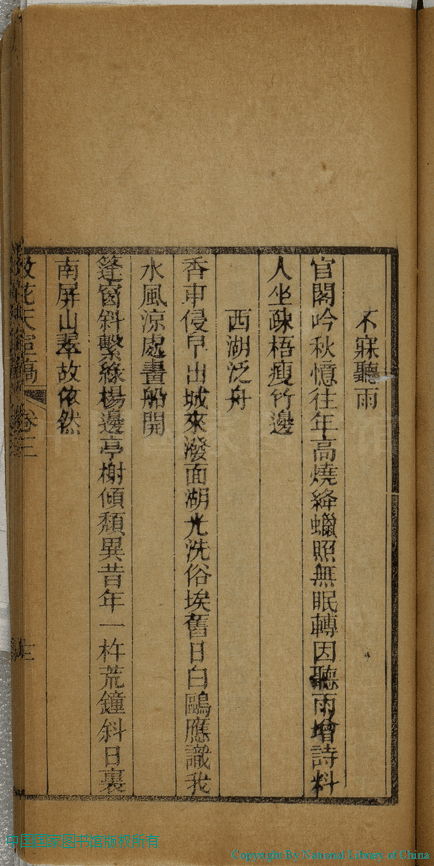 不寐聽雨
官閣吟秋憶往年高燒絳蠟照無眠轉因聽雨增詩料
人坐疎梧瘦竹邊
西湖泛舟
香車侵早出城來潑面湖光洗俗埃舊日白鷗應識我
水風涼處畫船開
篷窗斜繫綠楊邊亭榭傾頹異昔年一杵荒鐘斜日裏
南屏山翠故依然
散花天室稿 卷三
Copyright By National Library of China